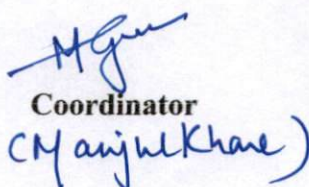 Coordinator
(Manjul Khare)